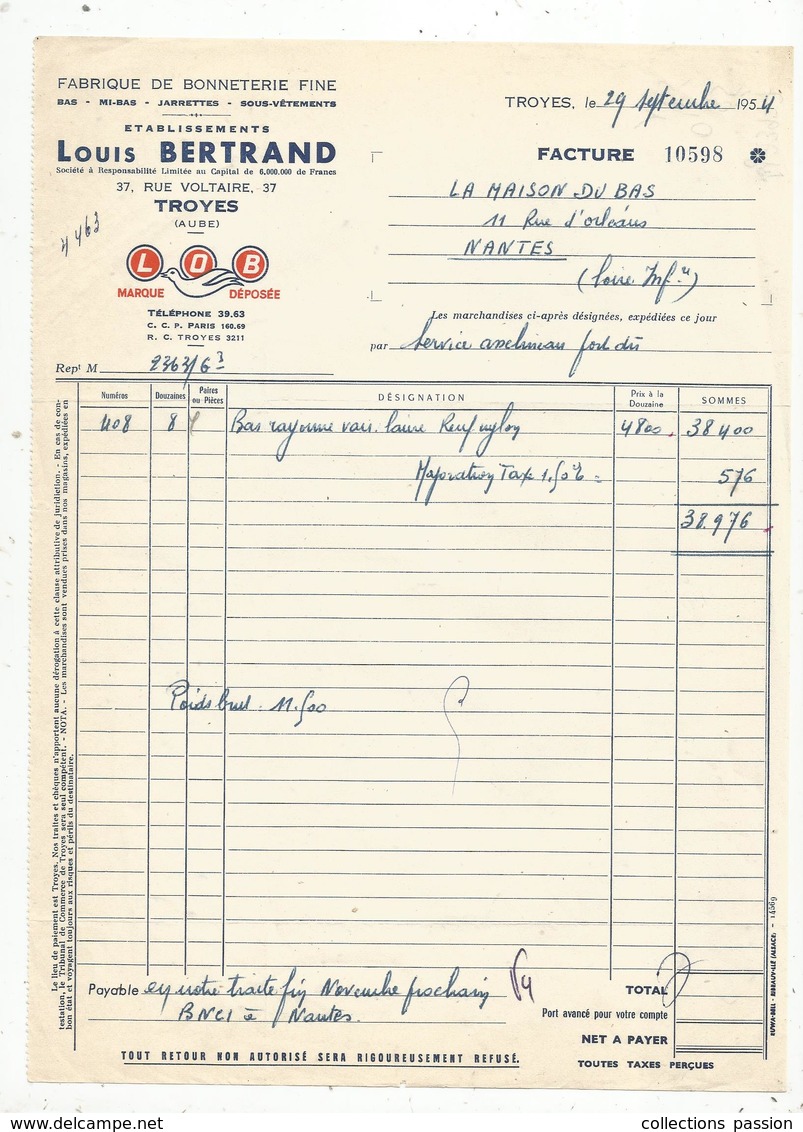 FABRIQUE DE BONNETERIE FINE
BAS - MI-BAS - JARRETTES - SOUS-VÊTEMENTS
ETABLISSEMENTS
LOUIS BERTRAND
Société à Responsabilité Limitée au Capital de 6.000.000 de Francs
37, RUE VOLTAIRE, 37
TROYES
(AUBE)
4463
LOB
MARQUE DÉPOSÉE
TÉLÉPHONE 39.63
C. C. P. PARIS 160.69
R. C. TROYES 3211
Rept M 2363/63
TROYES, le 29 septembre 1954
FACTURE 10598
LA MAISON DU BAS
11 Rue d'orléans
NANTES
(Loire Infre)
Les marchandises ci-après désignées, expédiées ce jour
par Service port dû
Numéros Douzaines Paires ou Pièces DÉSIGNATION Prix à la Douzaine SOMMES
408 8 Bas rayonne nylon 4800 38400
Majoration Taxe 1.50% = 576
38.976
Poids brut 11.500
Le lieu de paiement est Troyes. Nos traites et chèques n'apportent aucune dérogation à cette clause attributive de juridiction. - En cas de con-
testation, le Tribunal de Commerce de Troyes sera seul compétent. - NOTA. - Les marchandises sont vendues prises dans nos magasins, expédiées en
bon état et voyagent toujours aux risques et périls du destinataire.
Payable en notre traite fin Novembre prochain
BNCI à Nantes.
TOTAL
Port avancé pour votre compte
NET A PAYER
TOUTES TAXES PERÇUES
TOUT RETOUR NON AUTORISÉ SERA RIGOUREUSEMENT REFUSÉ.
collections passion